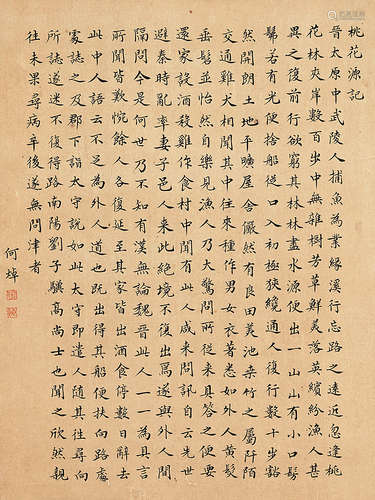 桃花源記
晉太原中武陵人捕魚為業緣溪行忘路之遠近忽逢桃
花林夾岸數百步中無雜樹芳草鮮美落英繽紛漁人甚
異之復前行欲窮其林林盡水源便出一山山有小口髣
髴若有光便捨船從口入初極狹纔通人復行數十步豁
然開朗土地平曠屋舍儼然有良田美池桑竹之屬阡陌
交通雞犬相聞其中往來種作男女衣著悉如外人黃髮
垂髫並怡然自樂見漁人乃大驚問所從來具答之便要
還家設酒殺雞作食村中聞有此人咸來問訊自云先世
避秦時亂率妻子邑人來此絕境不復出焉遂與外人間
隔問今是何世乃不知有漢無論魏晉此人一一為具言
所聞皆歎惋餘人各復延至其家皆出酒食停數日辭去
此中人語云不足為外人道也既出得其船便扶向路處
處誌之及郡下詣太守說如此太守即遣人隨其往尋向
所誌遂迷不復得路南陽劉子驥高尚士也聞之欣然親
往未果尋病卒後遂無問津者
何焯